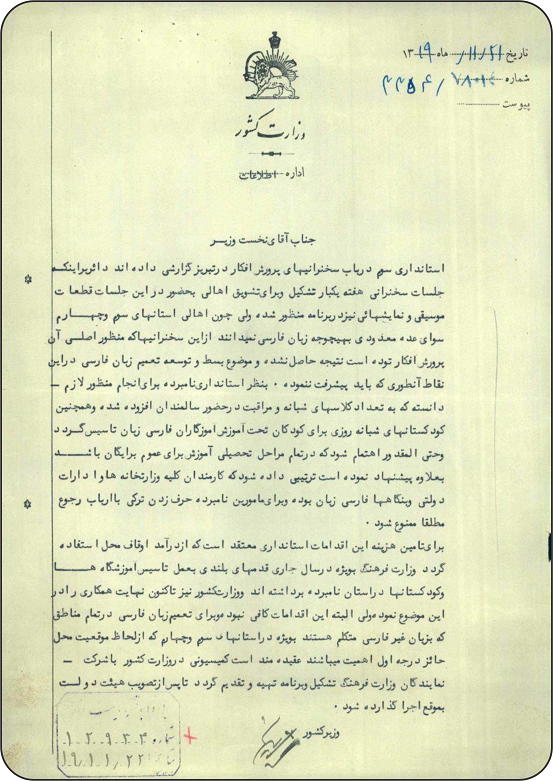 تاریخ ۲۱/۱۱/ ماه ۱۳۱۹
شماره
پیوست
وزارت کشور
اداره اطلاعات
جناب آقای نخست وزیر
استانداری سوم در باب سخنرانیهای پرورش افکار در تبریز گزارشی داده اند دائر براینکه
جلسات سخنرانی هفته یکبار تشکیل و برای تشویق اهالی بحضور در این جلسات قطعات
موسیقی و نمایشهائی نیز در برنامه منظور شده ولی چون اهالی استانهای سوم وچهارم
سوای عده معدودی بهیچوجه زبان فارسی نمیدانند از این سخنرانیها که منظور اصلی آن
پرورش افکار توده است نتیجه حاصل نشده و موضوع بسط و توسعه تعمیم زبان فارسی در این
نقاط آنطوری که باید پیشرفت ننموده . بنظر استانداری نامبرده برای انجام منظور لازم ــ
دانسته که به تعداد کلاسهای شبانه و مراقبت در حضور سالمندان افزوده شده وهمچنین
کودکستانهای شبانه روزی برای کودکان تحت آموزش آموزگاران فارسی زبان تاسیس گردد
وحتی المقدور اهتمام شود که در تمام مراحل تحصیلی آموزش برای عموم رایگان باشد
بعلاوه پیشنهاد نموده است ترتیبی داده شود که کارمندان کلیه وزارتخانه ها و ادارات
دولتی وبنگاهها فارسی زبان بوده وبرای مامورین نامبرده حرف زدن ترکی با ارباب رجوع
مطلقا ممنوع شود .
برای تامین هزینه این اقدامات استانداری معتقد است که از درآمد اوقاف محل استفاده
گردد وزارت فرهنگ بویژه در سال جاری قدمهای بلندی بعمل تاسیس آموزشگاه هـــا
وکودکستانها در استان نامبرده برداشته اند ووزارت کشور نیز تاکنون نهایت همکاری را در
این موضوع نموده ولی البته این اقدامات کافی نبوده وبرای تعمیم زبان فارسی در تمام مناطق
که بزبان غیر فارسی متکلم هستند بویژه در استانهای سوم وچهارم که از لحاظ موقعیت محل
حائز درجه اول اهمیت میباشند عقیده مند است کمیسیونی در وزارت کشور با شرکت ــ
نمایندگان وزارت فرهنگ تشکیل وبرنامه تهیه و تقدیم گردد تا پس از تصویب هیئت دولت
بموقع اجرا گذارده شود .
وزیر کشور